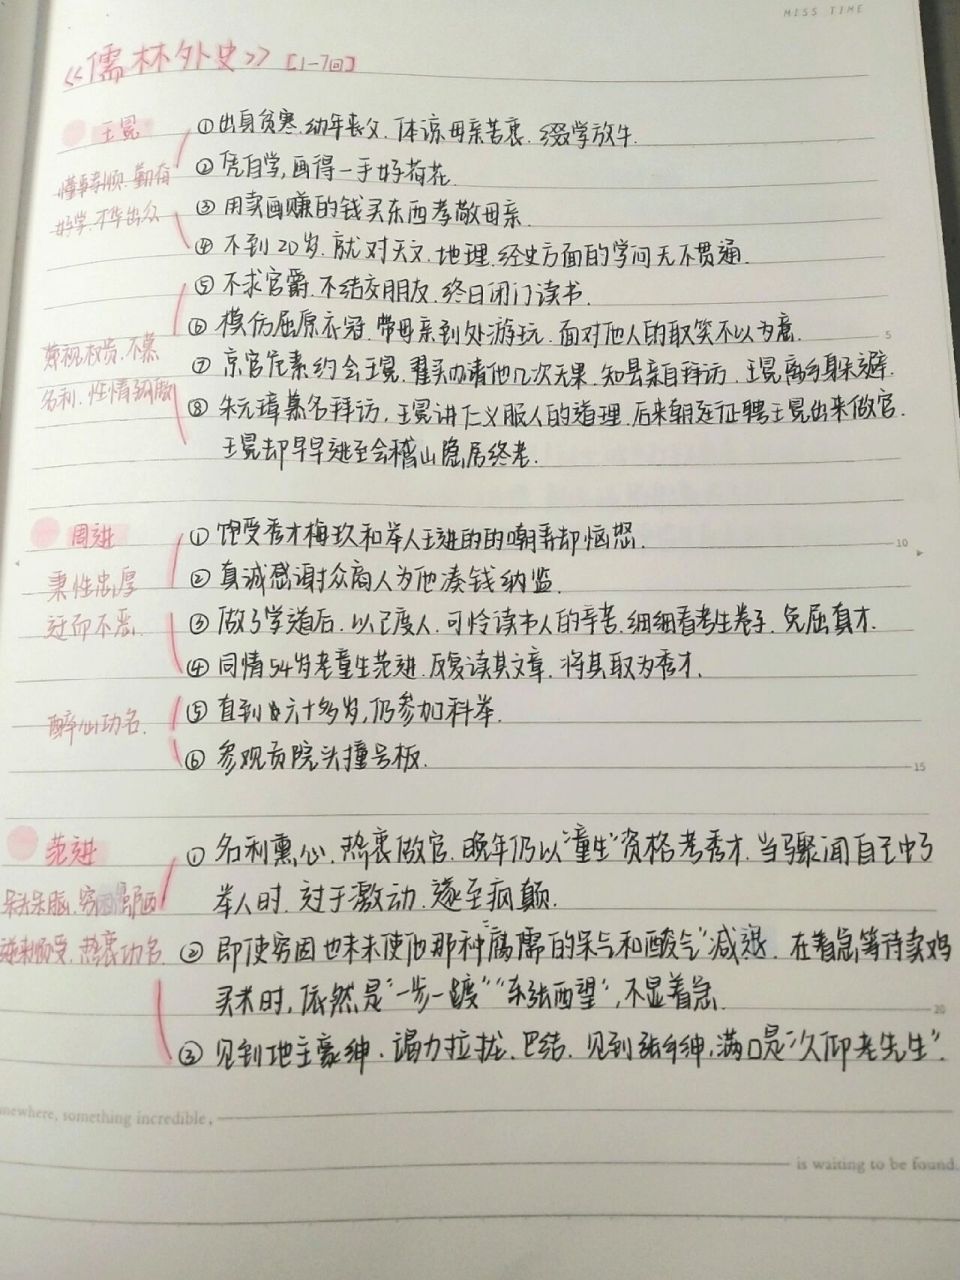 MISS TIME
《儒林外史》[1-7回]
王冕
①出身贫寒.幼年丧父.体谅母亲苦衷.缀学放牛.
②凭自学,画得一手好荷花.
懂事孝顺.勤奋
③用卖画赚的钱买东西孝敬母亲.
好学.才华出众
④不到20岁.就对天文.地理.经史方面的学问无不贯通.
⑤不求官爵.不结交朋友.终日闭门读书.
⑥模仿屈原衣冠.带母亲到处游玩.面对他人的取笑不以为意.
5
蔑视权贵.不慕
⑦京官危素约会王冕.翟买办请他几次无果.知县亲自拜访.王冕离乡躲避.
名利.性情
⑧朱元璋慕名拜访,王冕讲仁义服人的道理.后来朝廷征聘王冕出来做官.
王冕却早早逃至会稽山隐居终老.
周进
①饱受秀才梅玖和举人王进的的嘲弄却恼怒.
10
秉性忠厚
②真诚感谢众商人为他凑钱纳监.
迂而不恶.
③做了学道后.以己度人.可怜读书人的辛苦.细细看考生卷子.免屈真才.
④同情54岁老童生范进.反复读其文章.将其取为秀才.
醉心功名.
⑤直到六十多岁,仍参加科举.
⑥参观贡院头撞号板.
15
范进
①名利熏心.热衷做官.晚年仍以"童生"资格考秀才.当骤闻自己中了
呆头呆脑.
举人时.过于激动.遂至疯颠.
逆来顺受.热衷功名.
②即使穷困也未未使他那种腐儒的呆气和酸气"减退.在着急等待卖鸡
买米时,依然是"一步一踱""东张西望",不显着急.
20
③见到地主豪绅.竭力拉拢.巴结.见到张乡绅,满口是"久仰老先生".
mewhere, something incredible,
is waiting to be found.